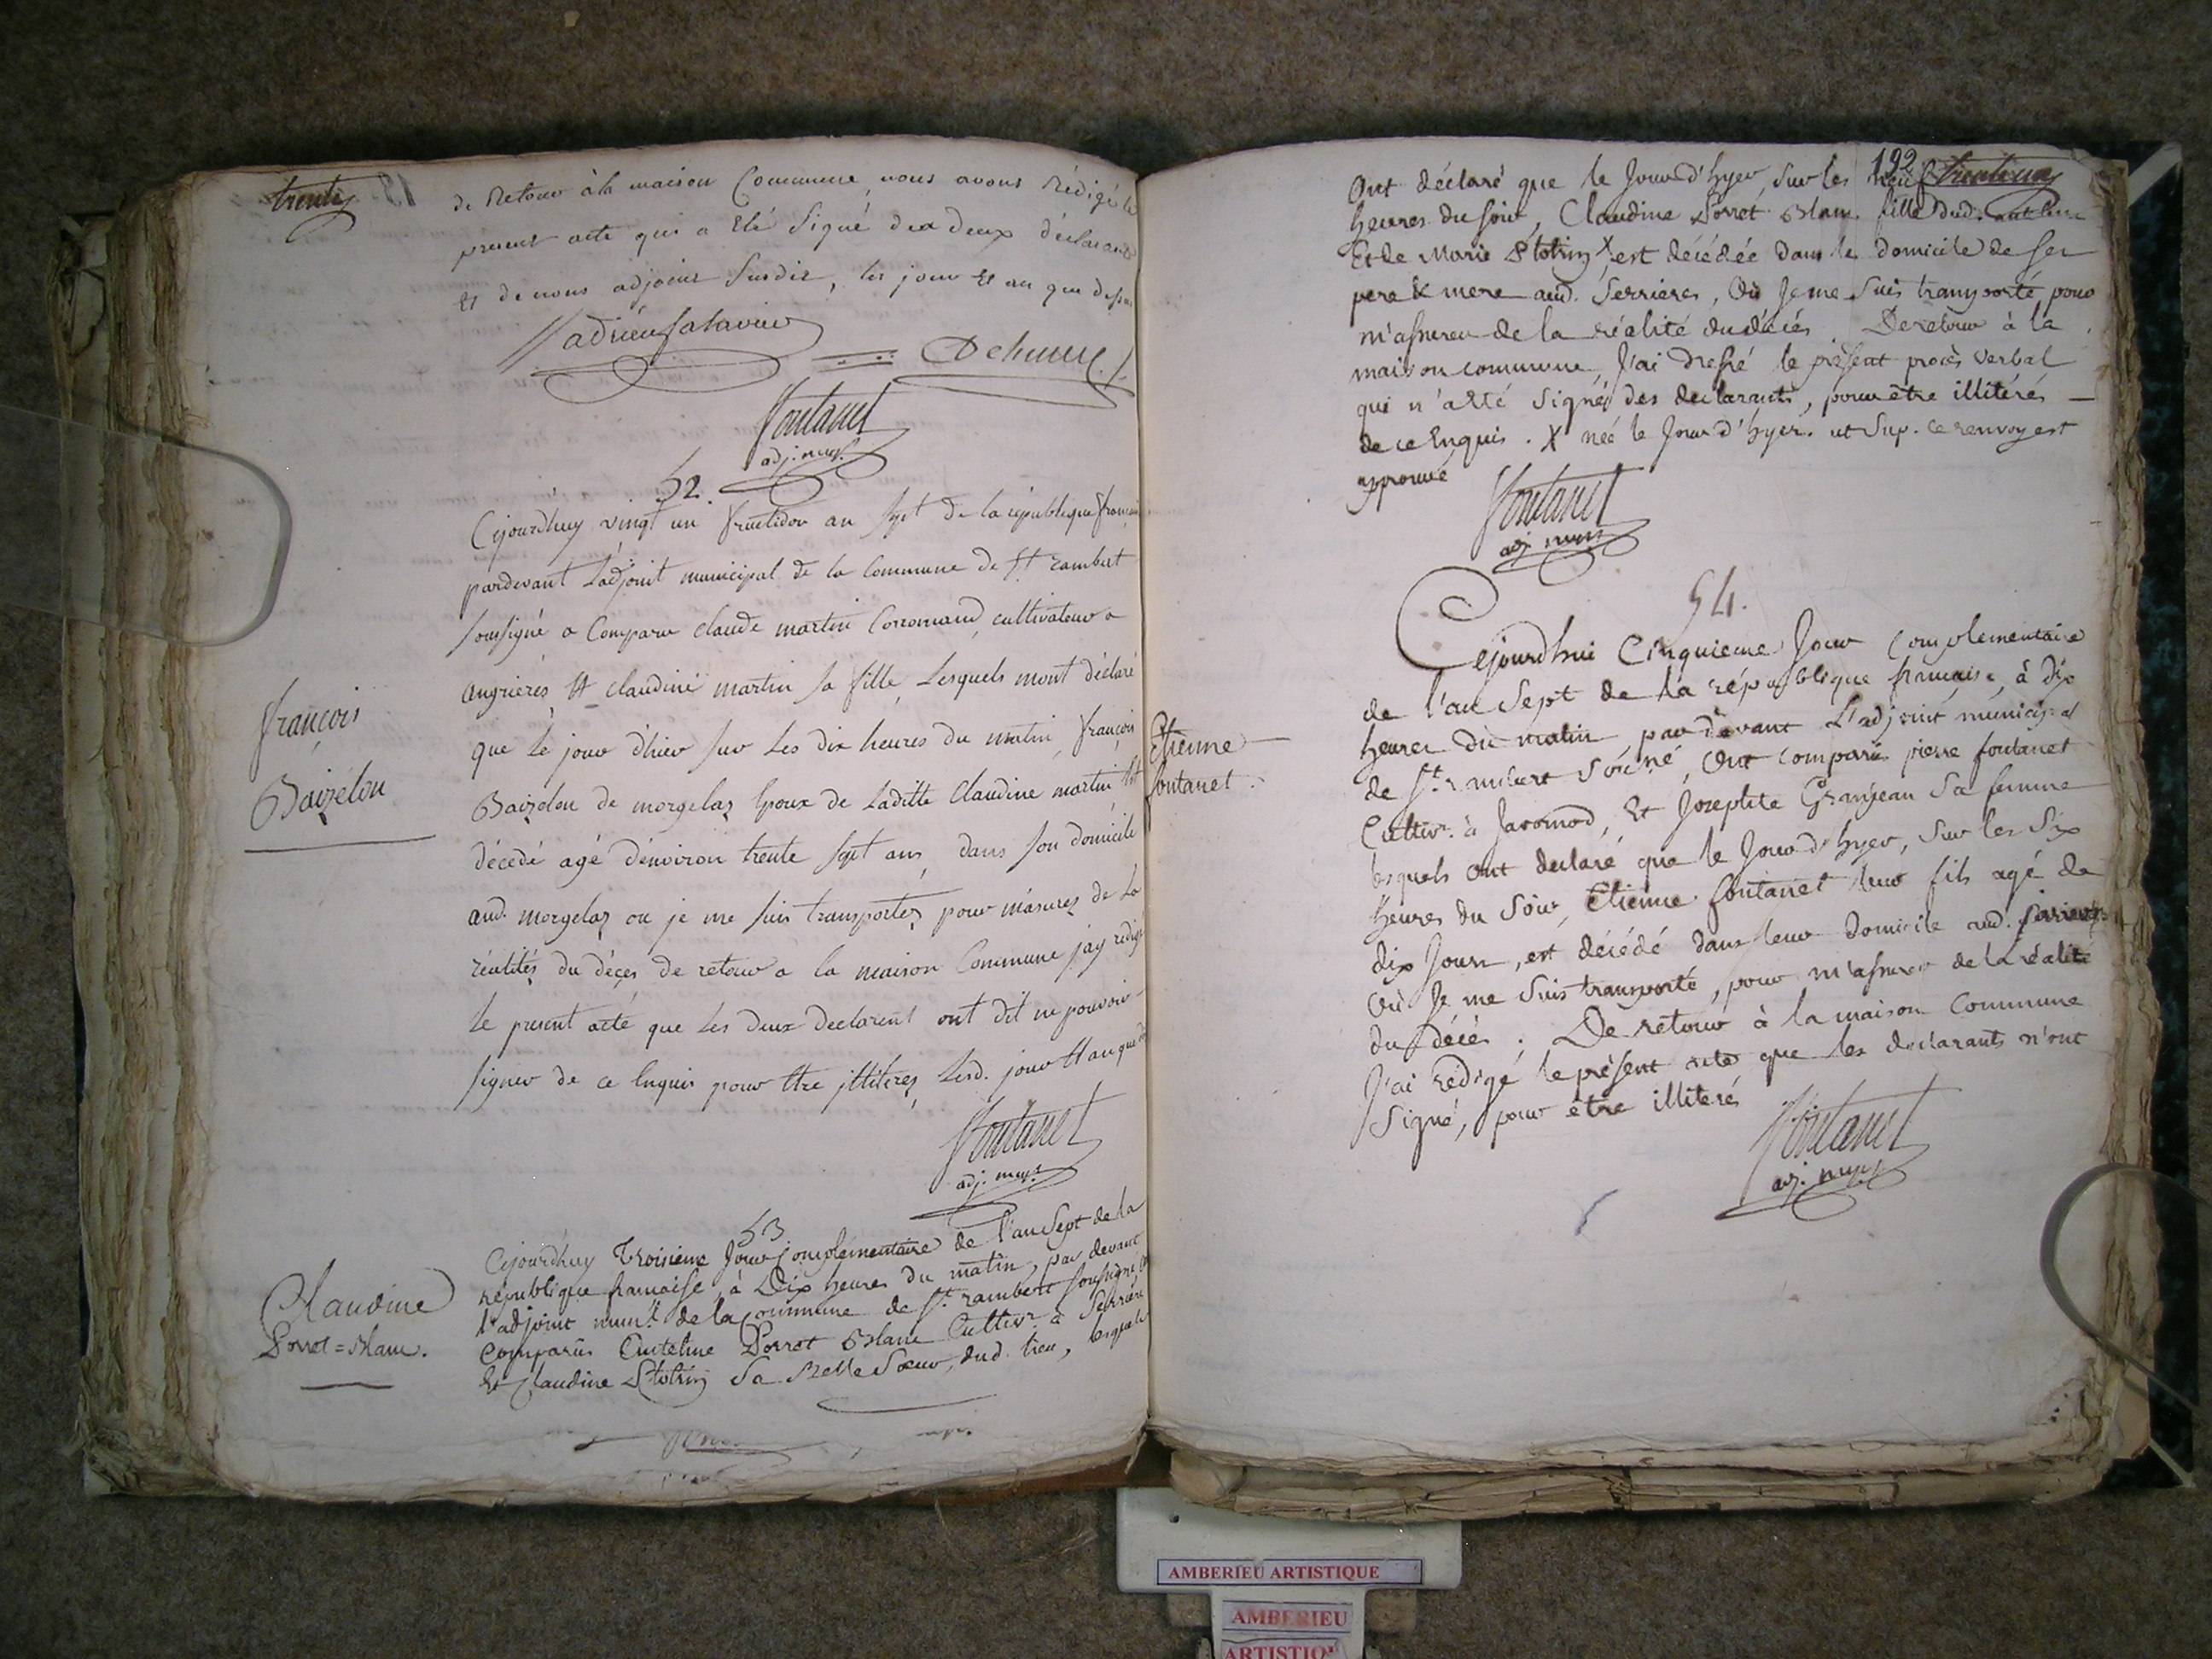 trente
de Retour à la maison Commune, nous avons Rédigé le
present acte qui a Eté Signé des deux déclarants
Et de nous adjoint Susdit, les jour Et an que dessus
Fontanet
adj. mup.
52.
Cejourdhuy vingt un fructidor an sept de la république francaise
pardevant L'adjoint municipal de la Commune de St rambert
soussigné a Comparu claude martin Corromand, cultivateur a
angrieres, Et claudine martin sa fille, Lesquels mont déclaré
que Le jour dhier sur Les dix heures du matin, françois
Baizelou de morgelaz Epoux de Laditte Claudine martin Est
décedé agé d'environ trente sept ans, dans son domicile
aud. morgelaz ou je me suis transportez pour m'asurez de La
réalités du déçes de retour a la maison Commune jay redigé
Le present acte que Les deux declarent ont dit ne pouvoir
signer de ce Enquis pour Etre illiterez Lesd. jour Et an que d
françois
Baizelou
Fontanet
adj. mup.
53
Cejourdhuy Troisieme Jour Complémentaire de l'an Sept de la
république francaise, à Dix heures du matin, par devant
l'adjoint munl. de la Commune de St. rambert soussigné, ont
Comparus Anthelme Porret Blanc Cultivr. à Serrieres
Et Claudine Sa Belle Soeur, dud. lieu, lesquels
Claudine
Porret = Blanc.
192
trente un
Ont déclaré que le Jour d'hyer, Sur les neuf
heures du soir, Claudine Porret Blanc fille dud. anthme
Et de Marie X est décédée dans le domicile de ses
pere & mere aud. Serrieres, Où Je me Suis transporté, pour
m'assurer de la réalité du décés. De retour à la
maison commune, J'ai dressé le présent procès verbal
qui n'a Eté Signé des declarants, pour être illitérés
de ce Enquis. X née le Jour d'hyer. ut Sup. ce renvoy est
approuvé
Fontanet
adj. mup.
54.
Cejourdhui Cinquieme Jour Complementaire
de l'an Sept de la république francaise, à dix
heures du matin, par devant L'adjoint municipal
de St. rambert Soussigné, Ont comparu pierre fontanet
Cultivr. à Javornod, Et Josephte Granjean Sa femme
lesquels Ont declaré que le Jour d'hyer, Sur les Six
heures du Soir, Etienne fontanet leur fils agé de
dix Jours, est décédé dans leur domicile aud.
Où Je me Suis transporté, pour m'assurer de la réalité
du décés. De retour à la maison Commune
J'ai redigé le présent acte que les declarants n'ont
Signé, pour être illiterés
Etienne
fontanet.
Fontanet
adj. mup.
AMBERIEU ARTISTIQUE
AMBERIEU
ARTISTIQU